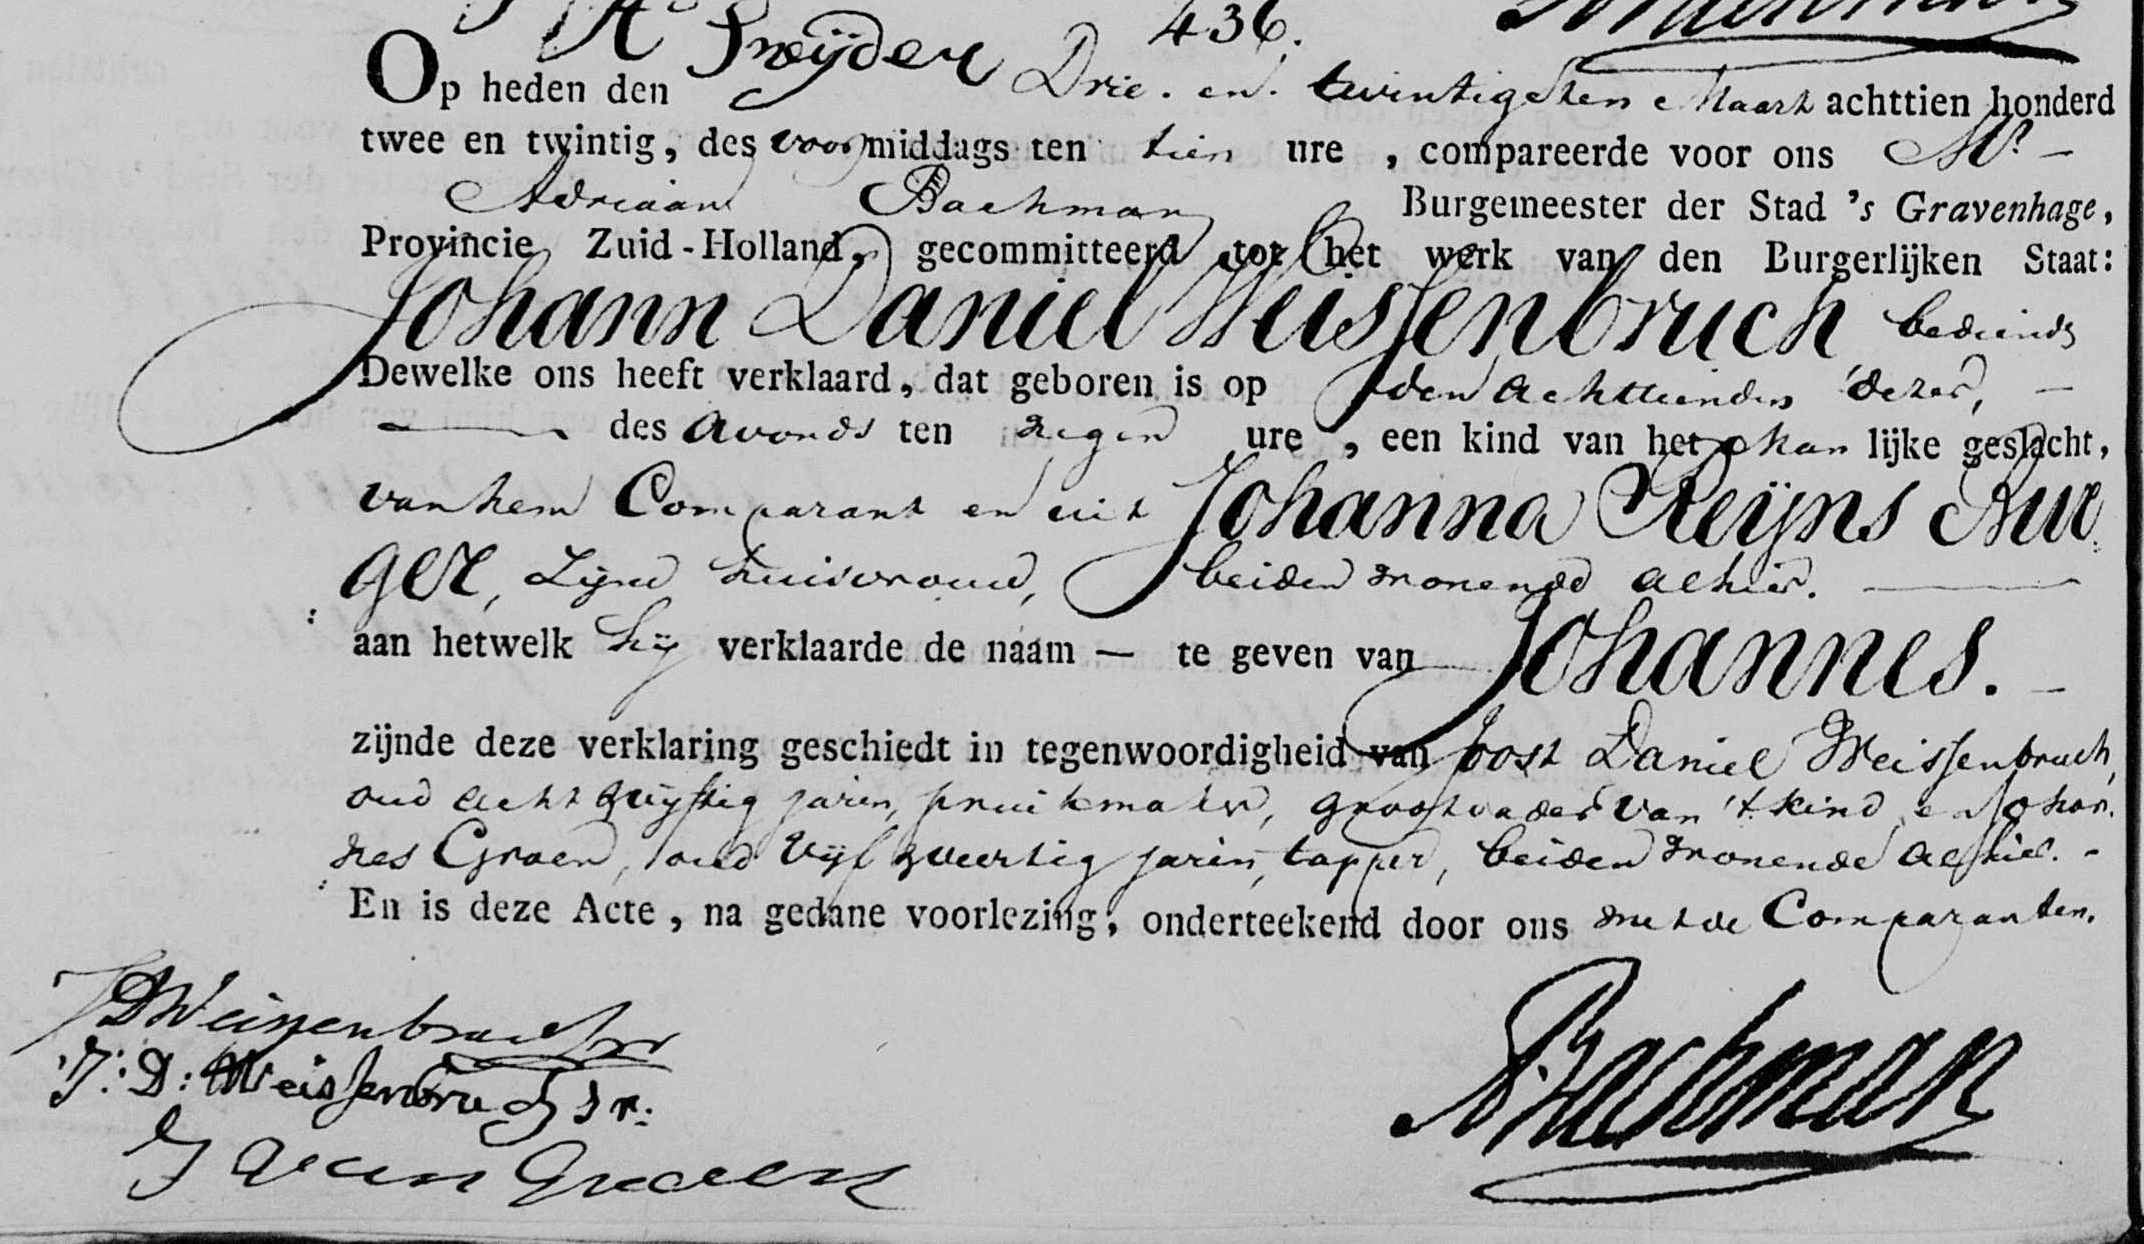 Sneijder
436.
Op heden den Drie. en. twintigsten Maart achttien honderd
twee en twintig, des voormiddags ten tien ure , compareerde voor ons Mr. —
Adriaan Bachman Burgemeester der Stad 's Gravenhage,
Provincie Zuid-Holland, gecommitteerd tot het werk van den Burgerlijken Staat:
Johann Daniel Weissenbruch bediende
Dewelke ons heeft verklaard, dat geboren is op den achttienden dezer, —
— des avonds ten negen ure , een kind van het man lijke geslacht,
van hem Comparant en uit Johanna Reijns Bur
ger, zijne huisvrouw, beiden wonende alhier. —
aan hetwelk hij verklaarde de naam — te geven van Johannes. —
zijnde deze verklaring geschiedt in tegenwoordigheid van Joost Daniel Weissenbruch,
oud acht & vijftig jaren, pruikmaker, grootvader van 't kind, en Johan
nes Groen, oud vijf & veertig jaren, tapper, beiden wonende alhier. -
En is deze Acte , na gedane voorlezing, onderteekend door ons met de Comparanten.
JD Weissenbruch
J: D: Weissenbruch Sr:
J van Groen
A Bachman